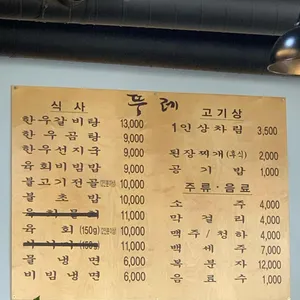 뚱레
식 사
한우갈비탕 13,000
한 우 곰 탕 9,000
한우선지국 9,000
육회비빔밥 9,000
불고기전골 10,000
불 초 밥 10,000
11,000
육 회 (150g) 10,000
(150g) 11,000
물 냉 면 6,000
비 빔 냉 면 6,000
고기상
1인상차림 3,500
된장찌개(후식) 2,000
공 기 밥 1,000
주류·음료
소 주 4,000
막 걸 리 4,000
맥주/청하 4,000
백 세 주 7,000
복 분 자 12,000
음 료 수 1,000